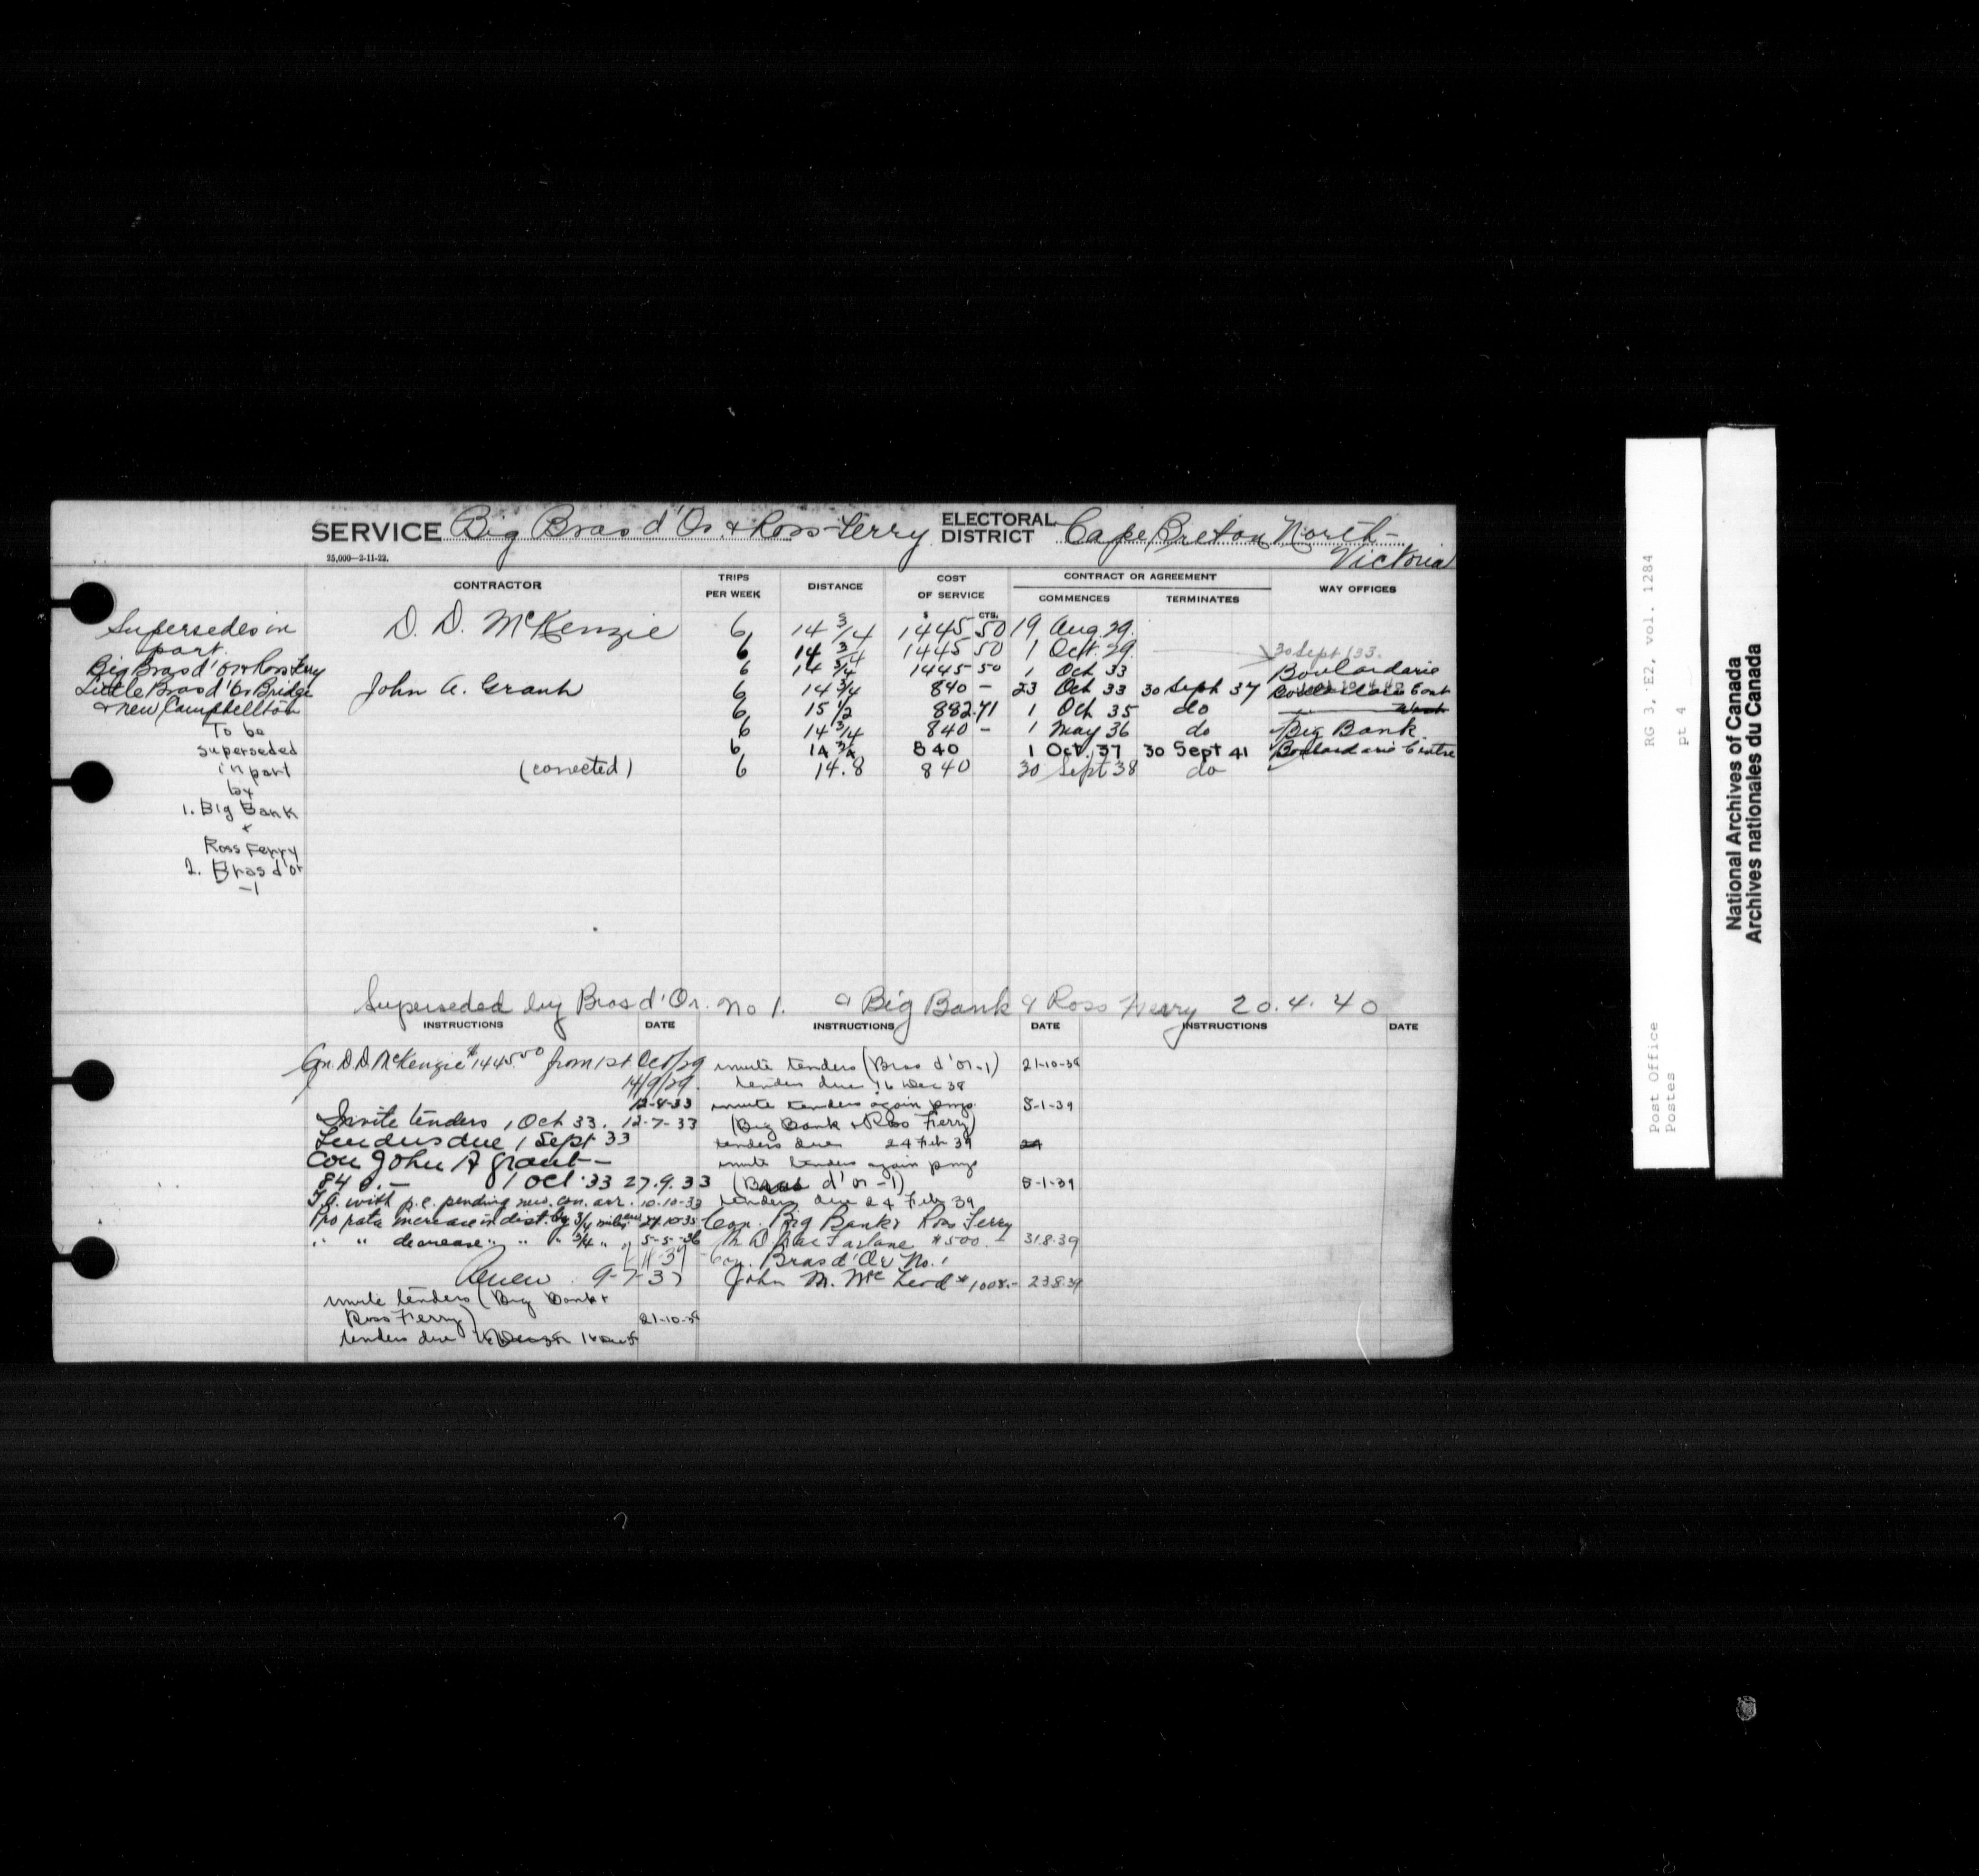 SERVICE Big Bras d'Or & Ross Ferry ELECTORAL DISTRICT Cape Breton North-Victoria
25,000—2-11-22.
CONTRACTOR TRIPS PER WEEK DISTANCE COST OF SERVICE CONTRACT OR AGREEMENT COMMENCES TERMINATES WAY OFFICES
$ CTS.
Supersedes in part. D. D. McKenzie 6 14 3/4 1445 50 19 Aug. 29.
6 14 3/4 1445 50 1 Oct. 29. 30 Sept /33.
Big Bras d'Or & Ross Ferry 6 14 3/4 1445 50 1 Oct 33 Boulardarie
Little Bras d'Or Bridge John A. Grant 6 14 3/4 840 - 23 Oct 33 30 Sept 37
& New Campbellton 6 15 1/2 882.71 1 Oct 35 do
To be 6 14 3/4 840 - 1 May 36 do Big Bank
superseded 6 14 3/4 840 1 Oct. 37 30 Sept 41 Boulardarie Centre
in part (corrected) 6 14.8 840 30 Sept 38 do
by
1. Big Bank
&
Ross Ferry
2. Bras d'or
-1
Superseded by Bras d'Or. No 1. & Big Bank & Ross Ferry 20.4.40
INSTRUCTIONS DATE INSTRUCTIONS DATE INSTRUCTIONS DATE
Con. D.D. McKenzie $1445.50 from 1st Oct/29
14/9/29.
12-8-33
Invite tenders 1 Oct 33. 12-7-33
Tenders due 1 Sept 33
Con John A Grant -
840.- 1 Oct. 33 27.9.33
T.A. with p.c. pending new con. arr. 10-10-33
Pro rata increase in dist. by 3/4 miles 24-10-35
" " decrease " " " 3/4 " 5-5-36
Renew 9-7-37
invite tenders (Big Bank &
Ross Ferry) 21-10-38
tenders due
invite tenders (Bras d'or-1) 21-10-38
tenders due 16 Dec 38
invite tenders again 5-1-39
(Big Bank & Ross Ferry)
tenders due 24 Feb 39
invite tenders again
(Bras d'or -1) 5-1-39
tenders due 24 Feb 39
Con. Big Bank & Ross Ferry
D MacFarlane $500.- 31.8.39
Con. Bras d'Or No. 1
John M. McLeod $1008.- 23.8.39
RG 3, E2, vol. 1284
pt 4
Post Office
Postes
National Archives of Canada
Archives nationales du Canada